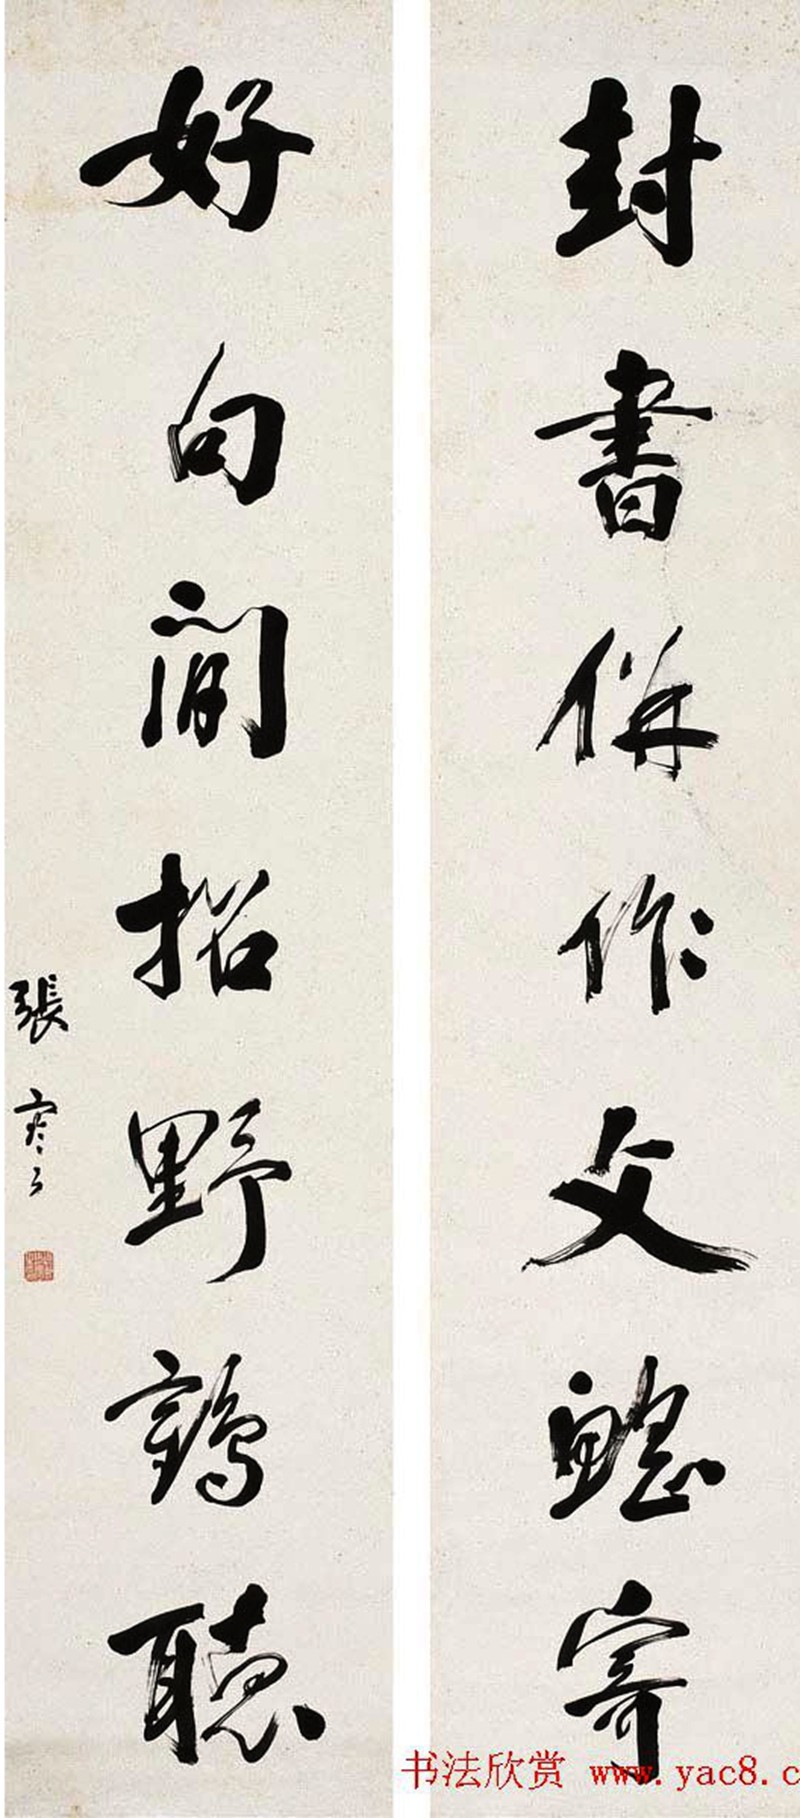 封書併作文鰓寄
好句閒招野鶴聽
張寒月
书法欣赏 www.yac8.c